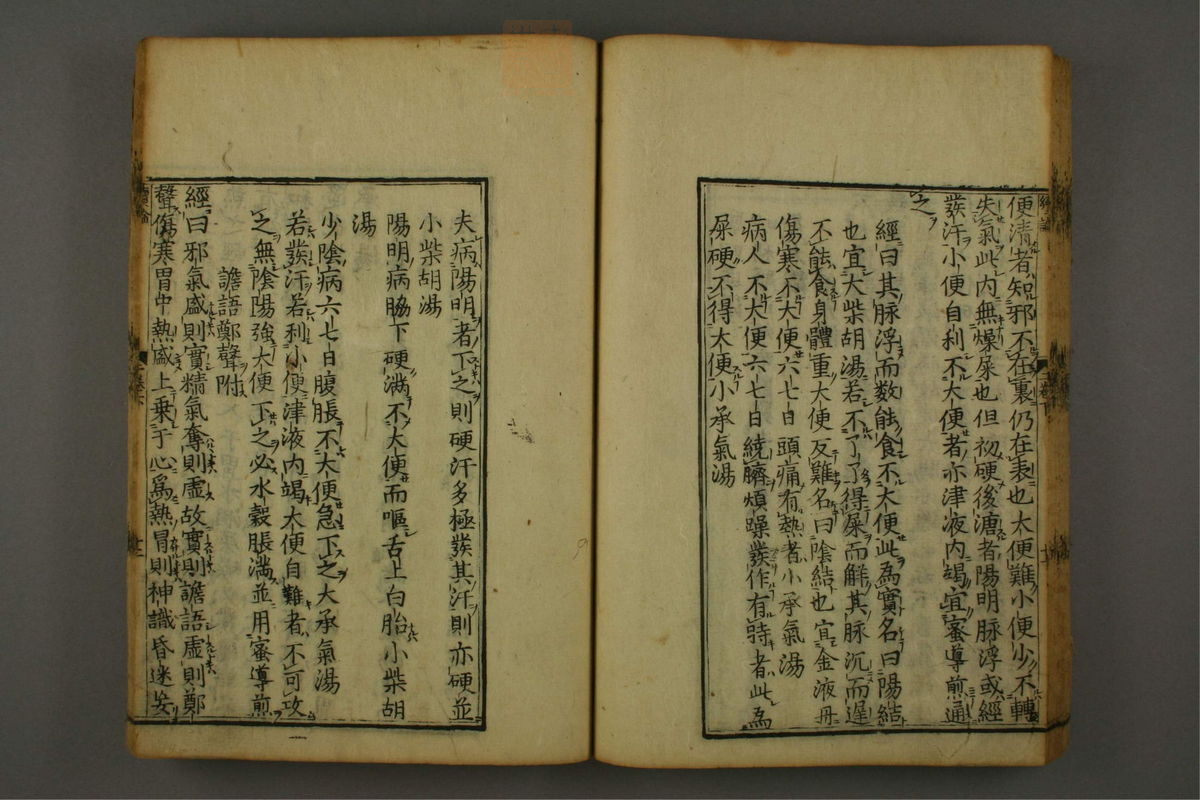 便清者知邪不在裏仍在表也大便難小便少不轉
失氣此內無燥屎也但初硬後溏者陽明脉浮或經
發汗小便自利不大便者亦津液內竭宜蜜導煎通
之
經曰其脉浮而数能食不大便此爲實名曰陽結
也宜大柴胡湯若不了了得屎而鮮其脉沉而遲
不能食身體重大便反難名曰陰結也宜金液丹
傷寒不大便六七日頭痛有熱者小承氣湯
病人不大便六七日繞臍煩躁發作有時者此爲
屎硬不得大便小承氣湯
夫病陽明者下之則硬汗多極發其汗則亦硬並
小柴胡湯
陽明病脇下硬滿不大便而嘔舌上白胎小柴胡
湯
少陰病六七日腹脹不大便急下之大承氣湯
若發汗若利小便津液內竭大便自難者不可攻
之無陰陽強大便下之必水穀脹滿並用蜜導煎
譫語鄭聲附
經曰邪氣盛則實精氣奪則虛故實則譫語虛則鄭
聲傷寒胃中熱盛上乗于心爲熱冒則神識昏迷妄